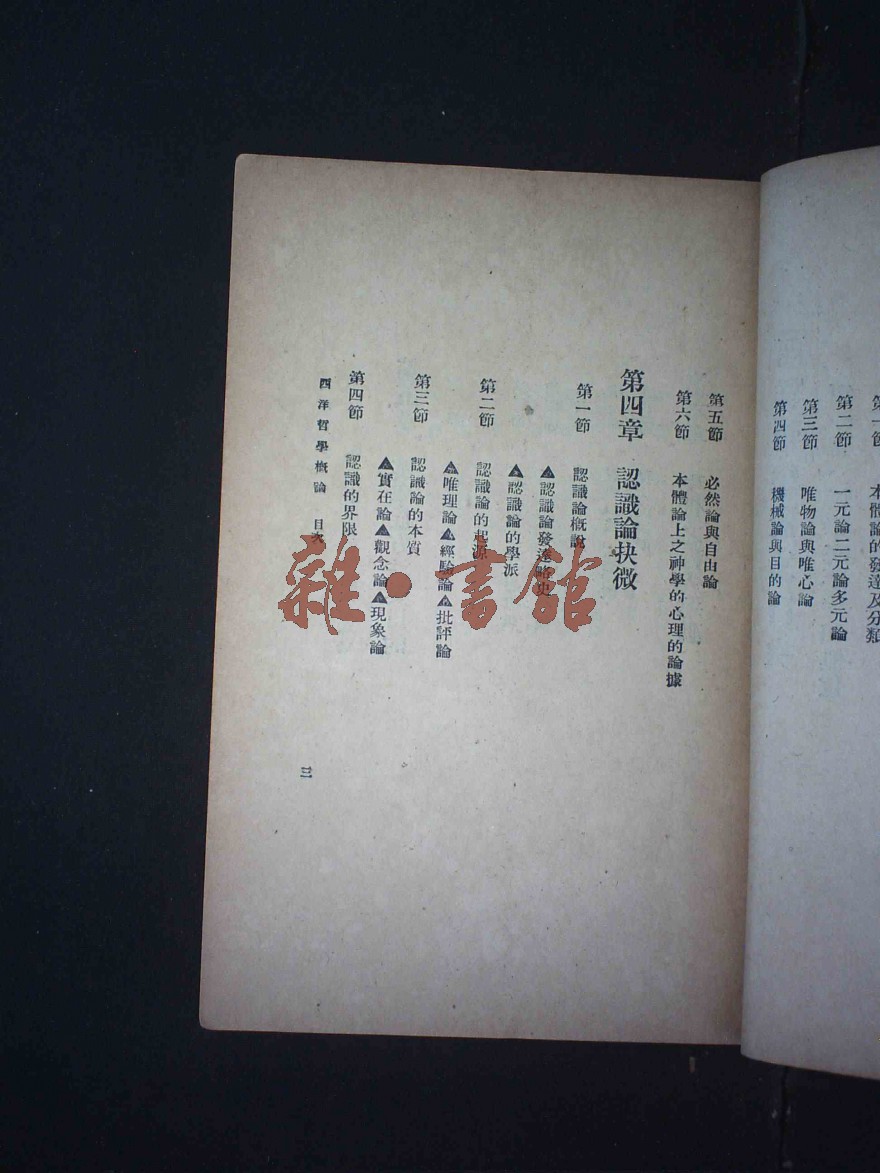 第一節 本體論的發達及分類
第二節 一元論二元論多元論
第三節 唯物論與唯心論
第四節 機械論與目的論
第五節 必然論與自由論
第六節 本體論上之神學的心理的論據
第四章 認識論抉微
第一節 認識論概說
▲認識論發達略史
▲認識論的學派
第二節 認識論的起源
▲唯理論▲經驗論▲批評論
第三節 認識論的本質
▲實在論▲觀念論▲現象論
第四節 認識的界限
西洋哲學概論 目次
三
雜·書館